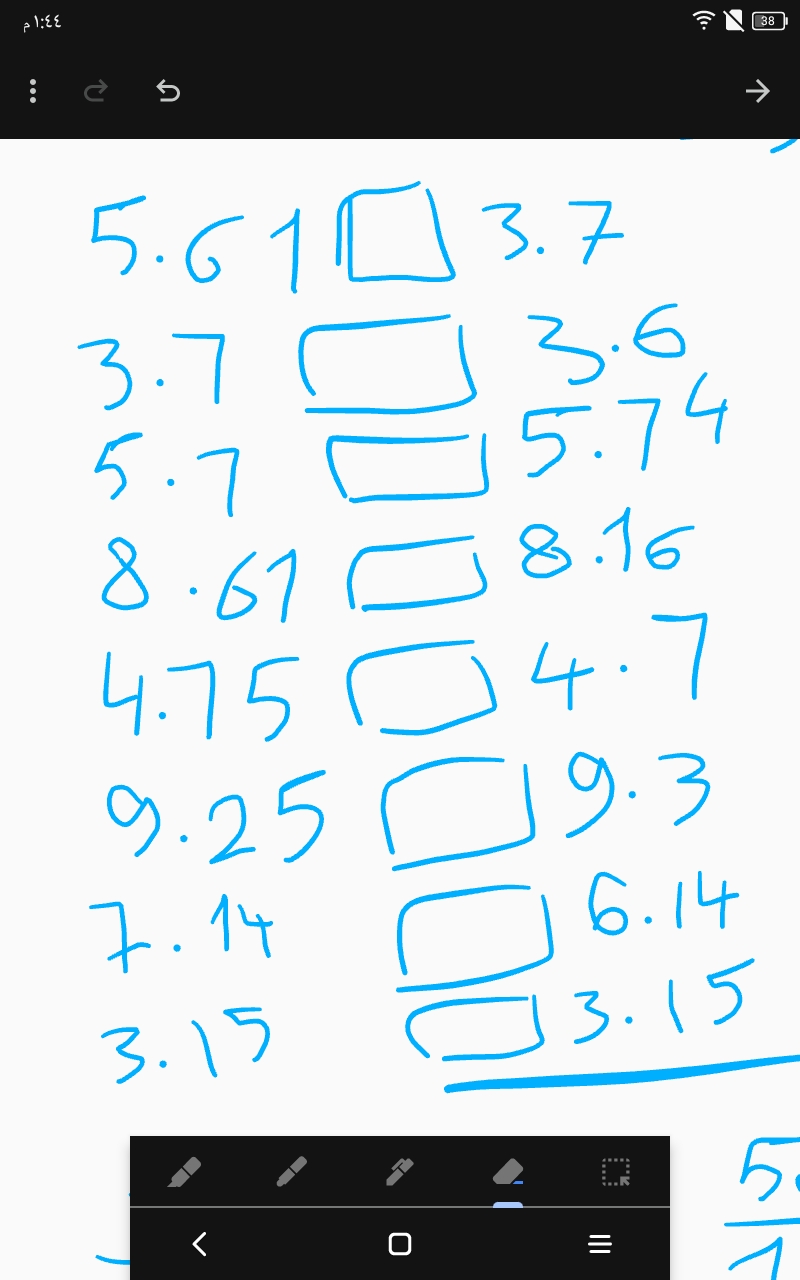 ١:٤٤ م
38
5.61 □ 3.7
3.7 □ 3.6
5.7 □ 5.74
8.61 □ 8.16
4.75 □ 4.7
9.25 □ 9.3
7.14 □ 6.14
3.15 □ 3.15